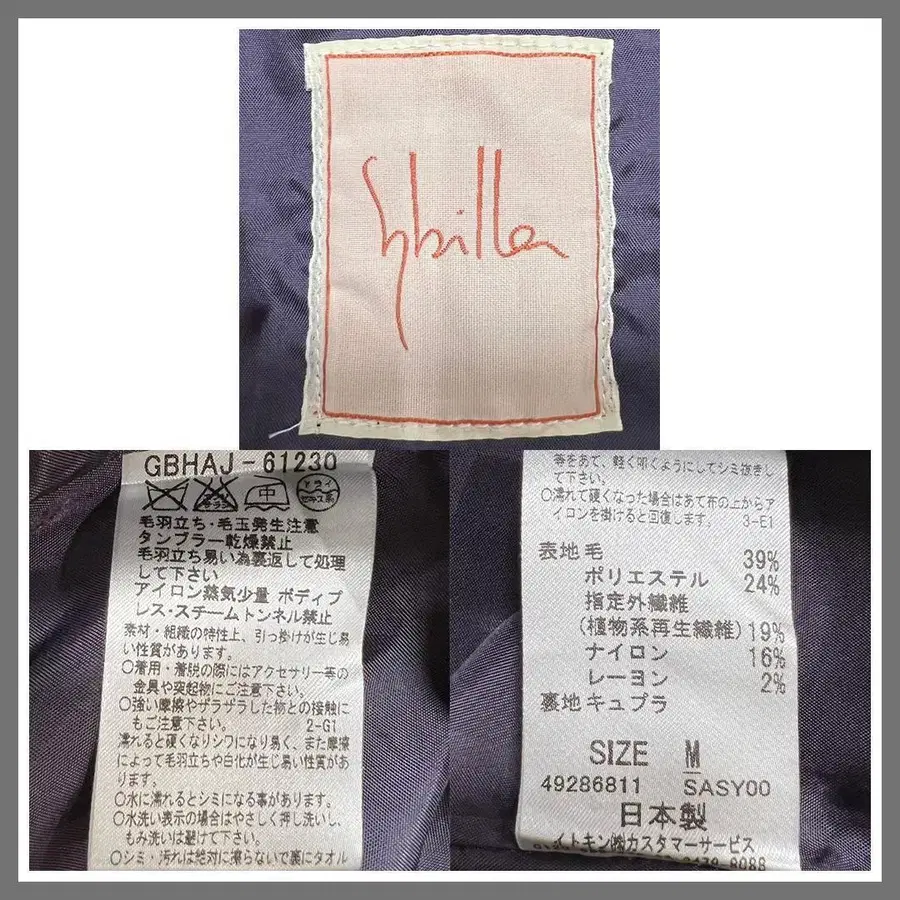 Sybilla
GBHAJ-61230
エンソサラシ
中
ドライ
セキユ系
毛羽立ち・毛玉発生注意
タンブラー乾燥禁止
毛羽立ち易い為裏返して処理
して下さい
アイロン蒸気少量 ボディプ
レス・スチームトンネル禁止
素材・組織の特性上、引っ掛けが生じ易
い性質があります。
○着用・着脱の際にはアクセサリー等の
金具や突起物にご注意下さい。
○強い摩擦やザラザラした物との接触に
もご注意下さい。 2-G1
濡れると硬くなりシワになり易く、また摩擦
によって毛羽立ちや白化が生じ易い性質があり
ます。
○水に濡れるとシミになる事があります。
○水洗い表示の場合はやさしく押し洗いし、
もみ洗いは避けて下さい。
○シミ・汚れは絶対に擦らないで裏にタオル
等をあて、軽く叩くようにしてシミ抜きし
て下さい。
○濡れて硬くなった場合はあて布の上からア
イロンを掛けると回復します。 3-E1
表地 毛 39%
ポリエステル 24%
指定外繊維
(植物系再生繊維) 19%
ナイロン 16%
レーヨン 2%
裏地 キュプラ
SIZE M
49286811 SASY00
日本製
イトキン㈱カスタマーサービス